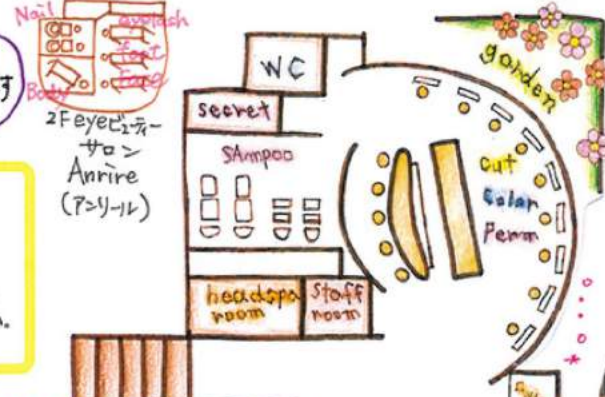 Nail
eyelash
foot
Face
Body
2F eyeビューティー
サロン
Anrire
(アンリール)
す
WC
secret
SAmpoo
headspa
room
staff
room
cut
Color
Perm
garden